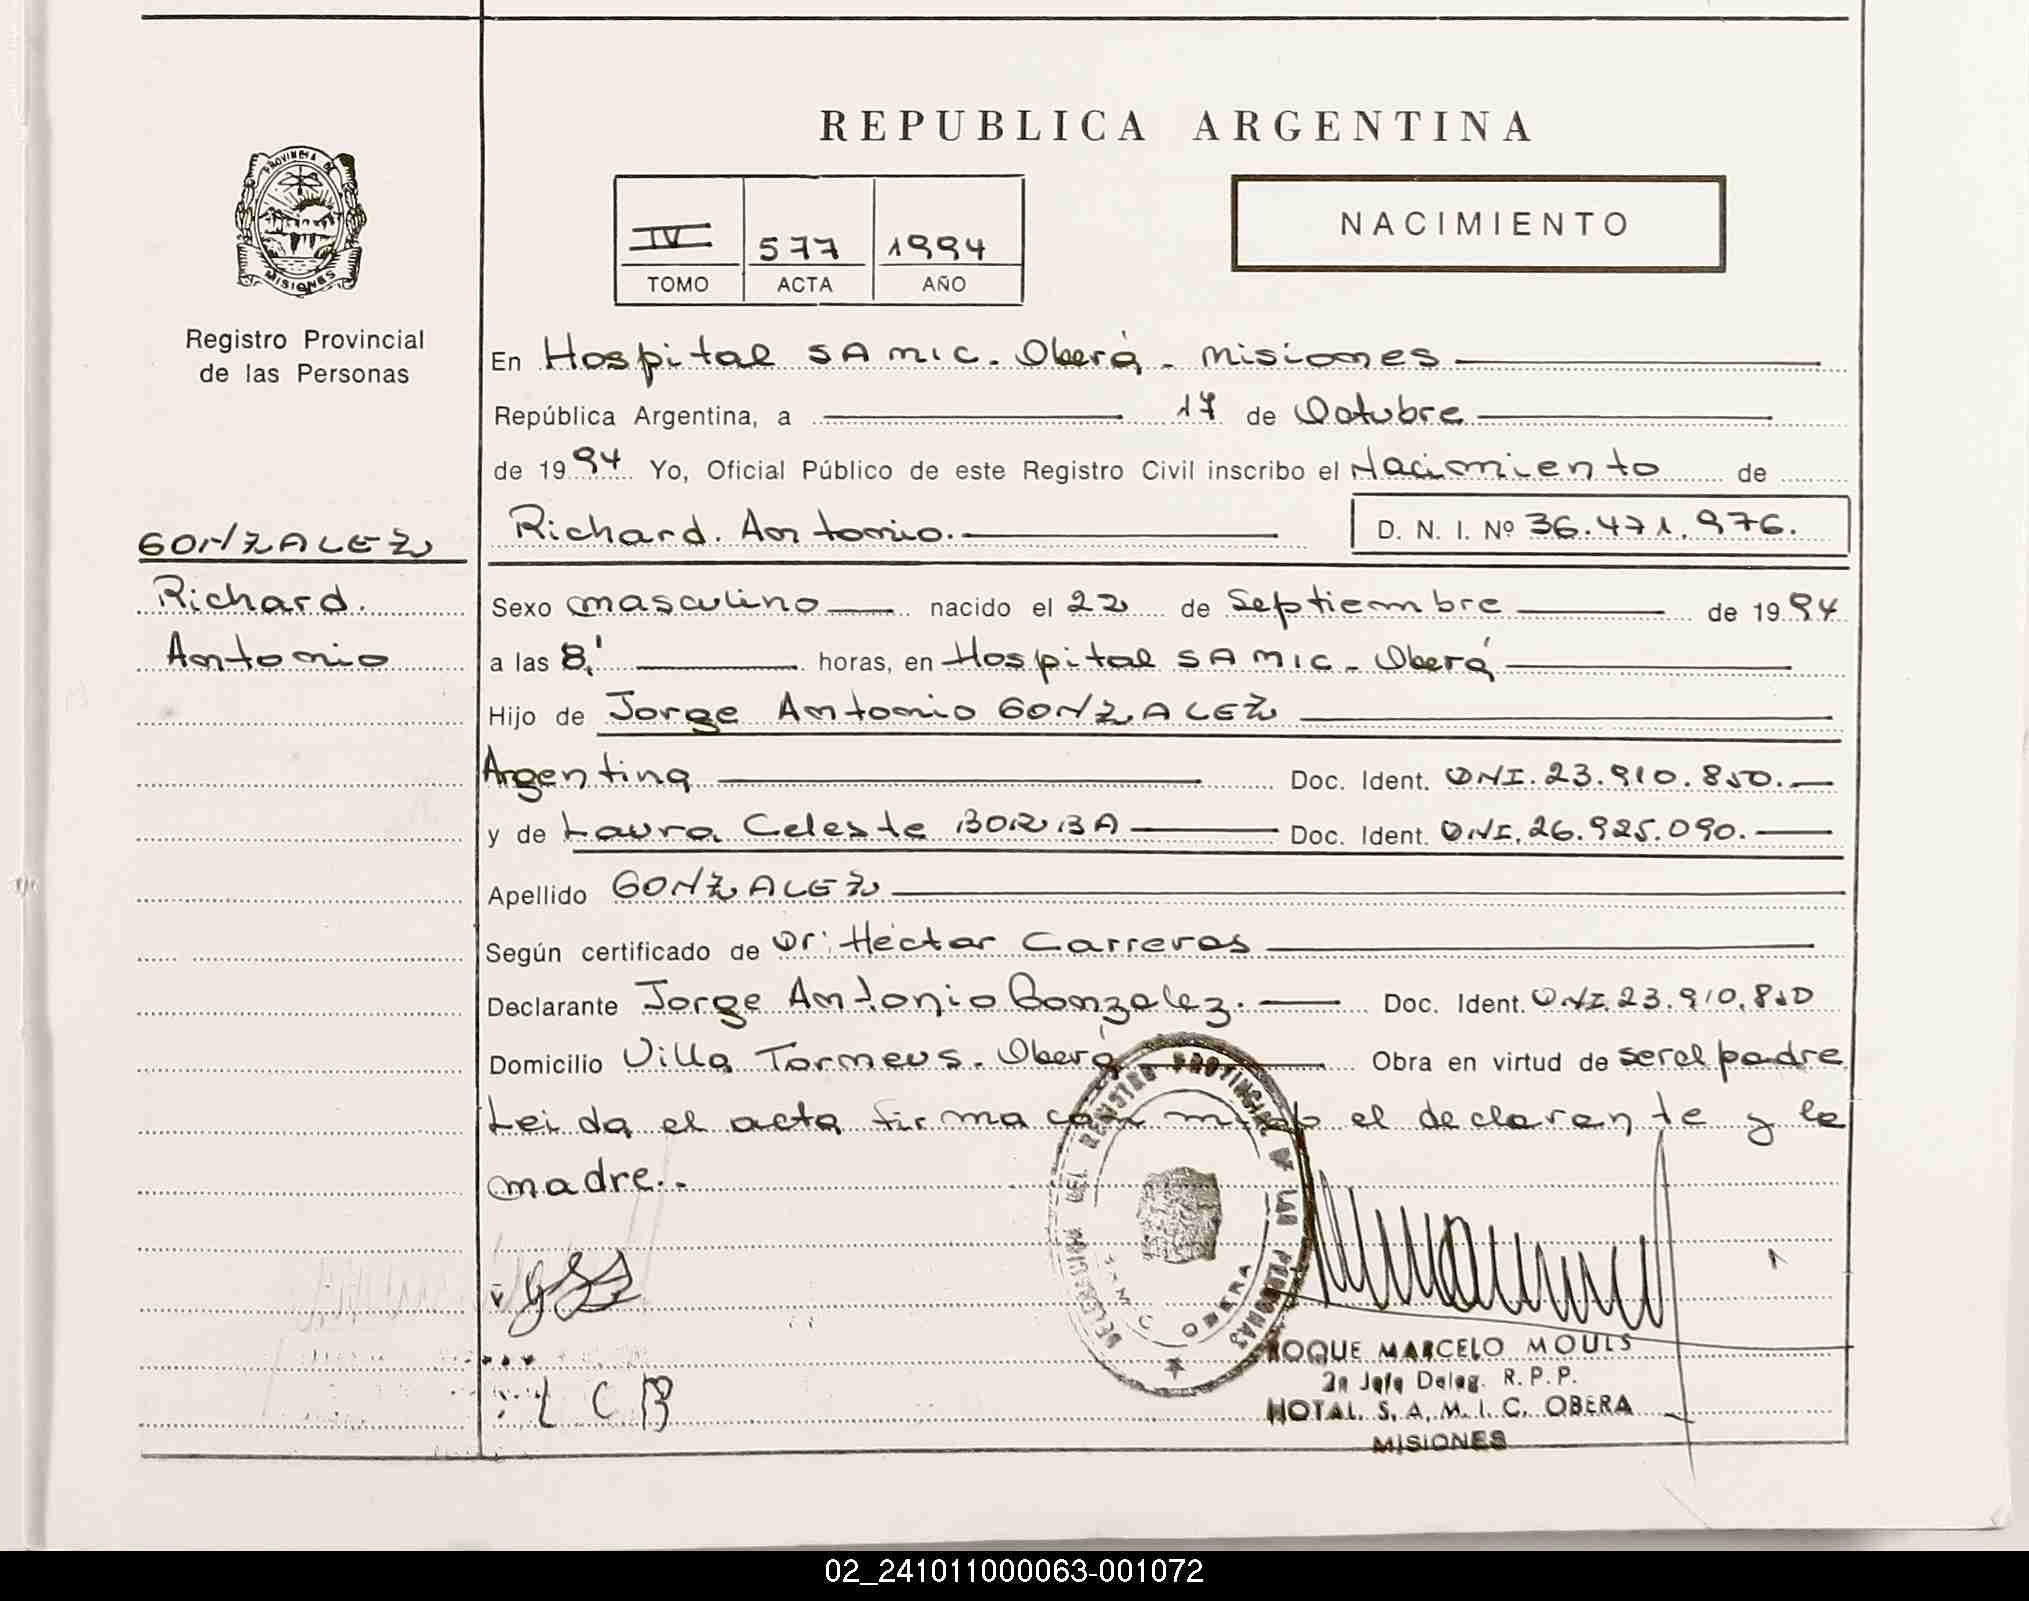 REPUBLICA ARGENTINA
PROVINCIA DE
MISIONES
Registro Provincial
de las Personas
IV 577 1994
TOMO ACTA AÑO
NACIMIENTO
En Hospital SAMIC. Oberá - Misiones
República Argentina, a 17 de Octubre
de 1994 Yo, Oficial Público de este Registro Civil inscribo el Nacimiento de
Richard Antonio. D. N. I. Nº 36.471.976.
GONZALEZ
Richard
Antonio
Sexo masculino nacido el 22 de Septiembre de 1994
a las 8,' horas, en Hospital SAMIC - Oberá
Hijo de Jorge Antonio GONZALEZ
Argentina Doc. Ident. DNI. 23.910.850.
y de Laura Celeste BORBA Doc. Ident. DNI. 26.925.090.
Apellido GONZALEZ
Según certificado de Dr: Héctor Carreras
Declarante Jorge Antonio Gonzalez. Doc. Ident. DNI. 23.910.850
Domicilio Villa Oberá Obra en virtud de ser el padre
Leida el acta firma con migo el declarante y la
madre.-
DEL REGISTRO PROVINCIAL DE LAS PERSONAS
OBERA
L C B
ROQUE MARCELO MOULS
2º Jefe Deleg. R.P.P.
HOTAL. S. A. M. I. C. OBERA
MISIONES
02_241011000063-001072